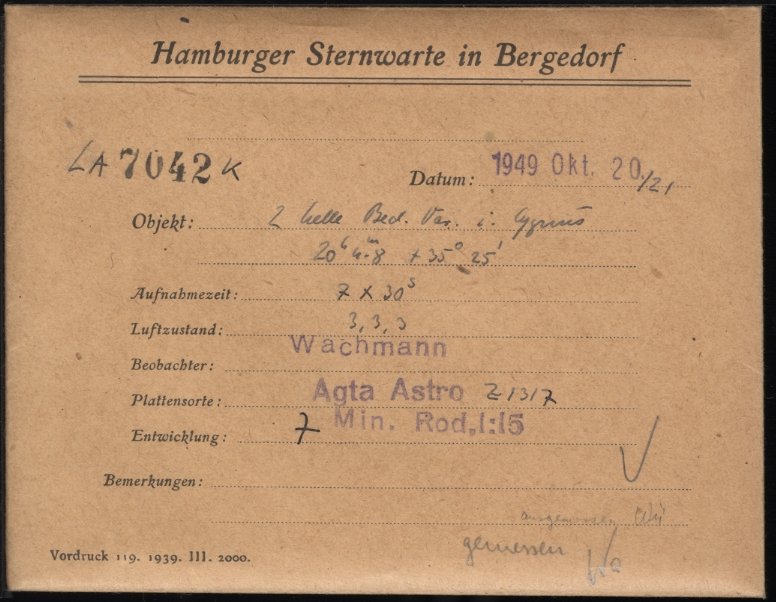 Hamburger Sternwarte in Bergedorf
LA 7042 K
Datum: 1949 Okt. 20./21
Objekt: 2 helle Bed. Var. i. Cygnus
20h 4m.8 + 35° 25'
Aufnahmezeit: 7 x 30s
Luftzustand: 3, 3, 3
Beobachter: Wachmann
Plattensorte: Agfa Astro Z1317
Entwicklung: 7 Min. Rod. 1:15
Bemerkungen:
gemessen
Vordruck 119. 1939. III. 2000.